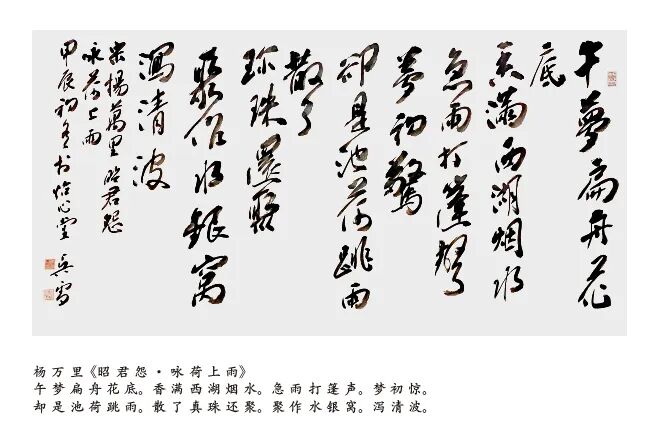 午夢扁舟花
底
香滿西湖烟水
急雨打篷聲
夢初驚
卻是池荷跳雨
散了
珎珠還聚
聚作水銀窩
瀉清波
宋楊萬里昭君怨
咏荷上雨
甲辰初冬於怡心堂
吳雪
杨万里《昭君怨·咏荷上雨》
午梦扁舟花底。香满西湖烟水。急雨打篷声。梦初惊。
却是池荷跳雨。散了真珠还聚。聚作水银窝。泻清波。